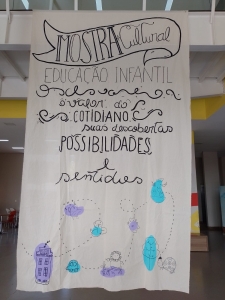 MOSTRA Cultural
EDUCAÇÃO INFANTIL
O valor do
COTIDIANO:
suas descobertas
POSSIBILIDADES
e
sentidos